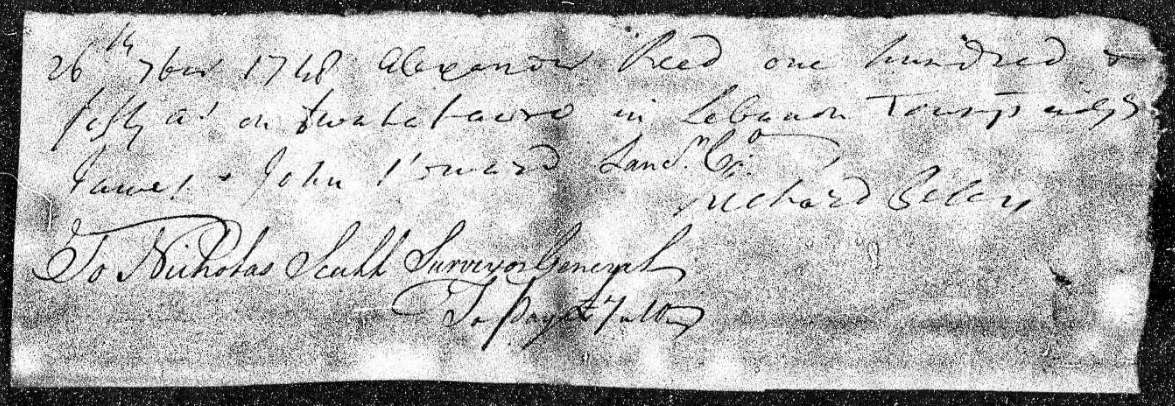 26th 7ber 1748 Alexander Reed one hundred &
fifty as on Swatataro in Lebanon Townsp adjg
James & John Howard Lancr Co.
Richard Peters
To Nicholas Scull Surveyor General
To pay